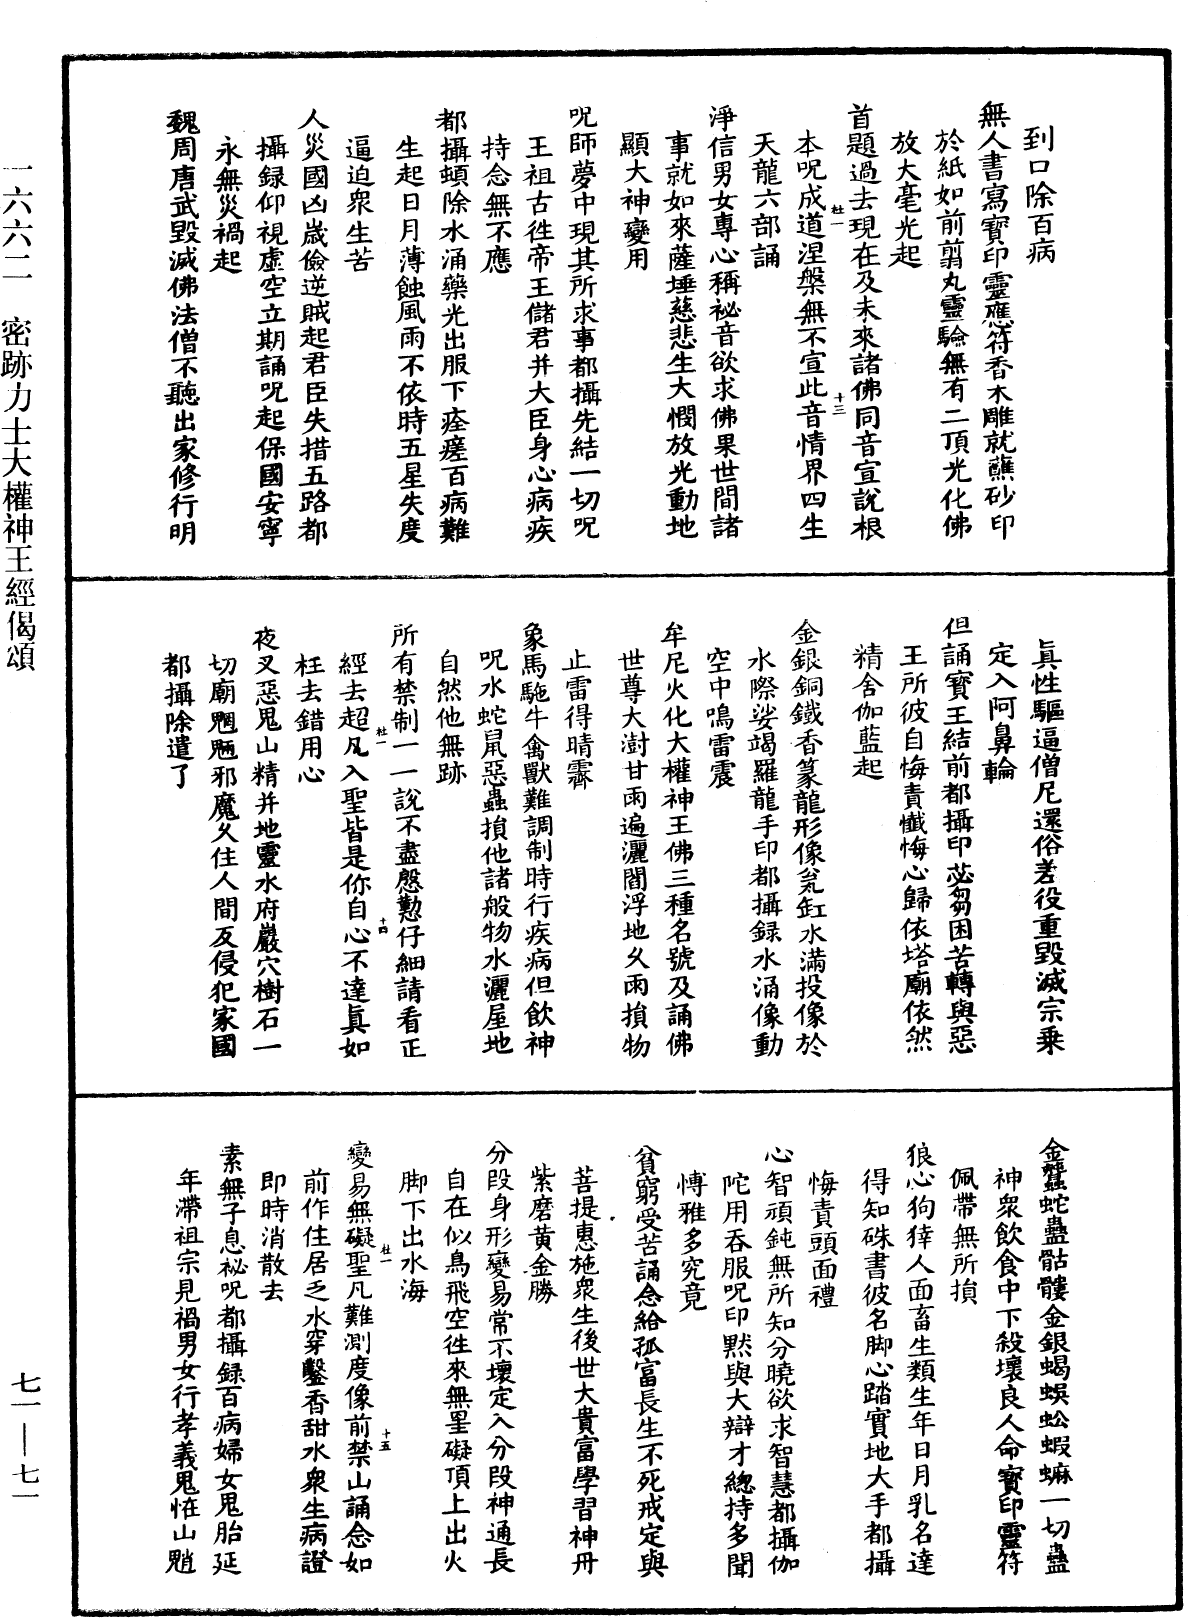 到口除百病
無人書寫寶印靈應符香木雕就蘸砂印
於紙如前翦丸靈驗無有二頂光化佛
放大毫光起
首題過去現在及未來諸佛同音宣說根
本呪成道涅槃無不宣此音情界四生
天龍六部誦
淨信男女專心稱祕音欲求佛果世間諸
事就如來薩埵慈悲生大憫放光動地
顯大神變用
呪師夢中現其所求事都攝先結一切呪
王祖古徃帝王儲君并大臣身心病疾
持念無不應
都攝頓除水涌藥光出服下痊瘥百病難
生起日月薄蝕風雨不依時五星失度
逼迫衆生苦
人災國凶歲儉逆賊起君臣失措五路都
攝録仰視虛空立期誦呪起保國安寧
永無災禍起
魏周唐武毀滅佛法僧不聽出家修行明
眞性驅逼僧尼還俗差役重毀滅宗乗
定入阿鼻輪
但誦寳王結前都攝印苾芻困苦轉與惡
王所彼自悔責懺悔心歸依塔廟依然
精舍伽藍起
金銀銅鐵香篆龍形像瓮缸水滿投像於
水際娑竭羅龍手印都攝録水涌像動
空中鳴雷震
牟尼火化大權神王佛三種名號及誦佛
世尊大澍甘雨遍灑閻浮地久雨損物
止雷得晴霽
象馬駞牛禽獸難調制時行疾病但飲神
呪水蛇鼠惡蟲損他諸般物水灑屋地
自然他無跡
所有禁制一一說不盡慇懃仔細請看正
經去超凡入聖皆是你自心不達眞如
枉去錯用心
夜叉惡鬼山精并地靈水府巖穴樹石一
切廟魍魎邪魔久住人間及侵犯家國
都攝除遣了
金蠶蛇蠱骷髏金銀蝎蜈蚣蝦蟆一切蠱
神衆飲食中下殺壞良人命寳印靈符
佩帶無所損
狼心狗倖人面畜生類生年日月乳名達
得知硃書彼名脚心踏實地大手都攝
悔責頭面禮
心智頑鈍無所知分曉欲求智慧都攝伽
陀用吞服呪印黙與大辯才緫持多聞
愽雅多究竟
貧窮受苦誦念給孤富長生不死戒定與
菩提惠施衆生後世大貴富學習神丹
紫磨黄金勝
分段身形變易常不壞定入分段神通長
自在似鳥飛空徃來無罣礙頂上出火
脚下出水海
變易無礙聖凡難測度像前禁山誦念如
前作住居乏水穿鑿香甜水衆生病證
即時消散去
素無子息祕呪都攝録百病婦女鬼胎延
年滯祖宗見禍男女行孝義鬼恠山魈
杜一
十三
杜一
十四
杜一
十五
一六六二　密跡力士大權神王經偈頌
七一—七一